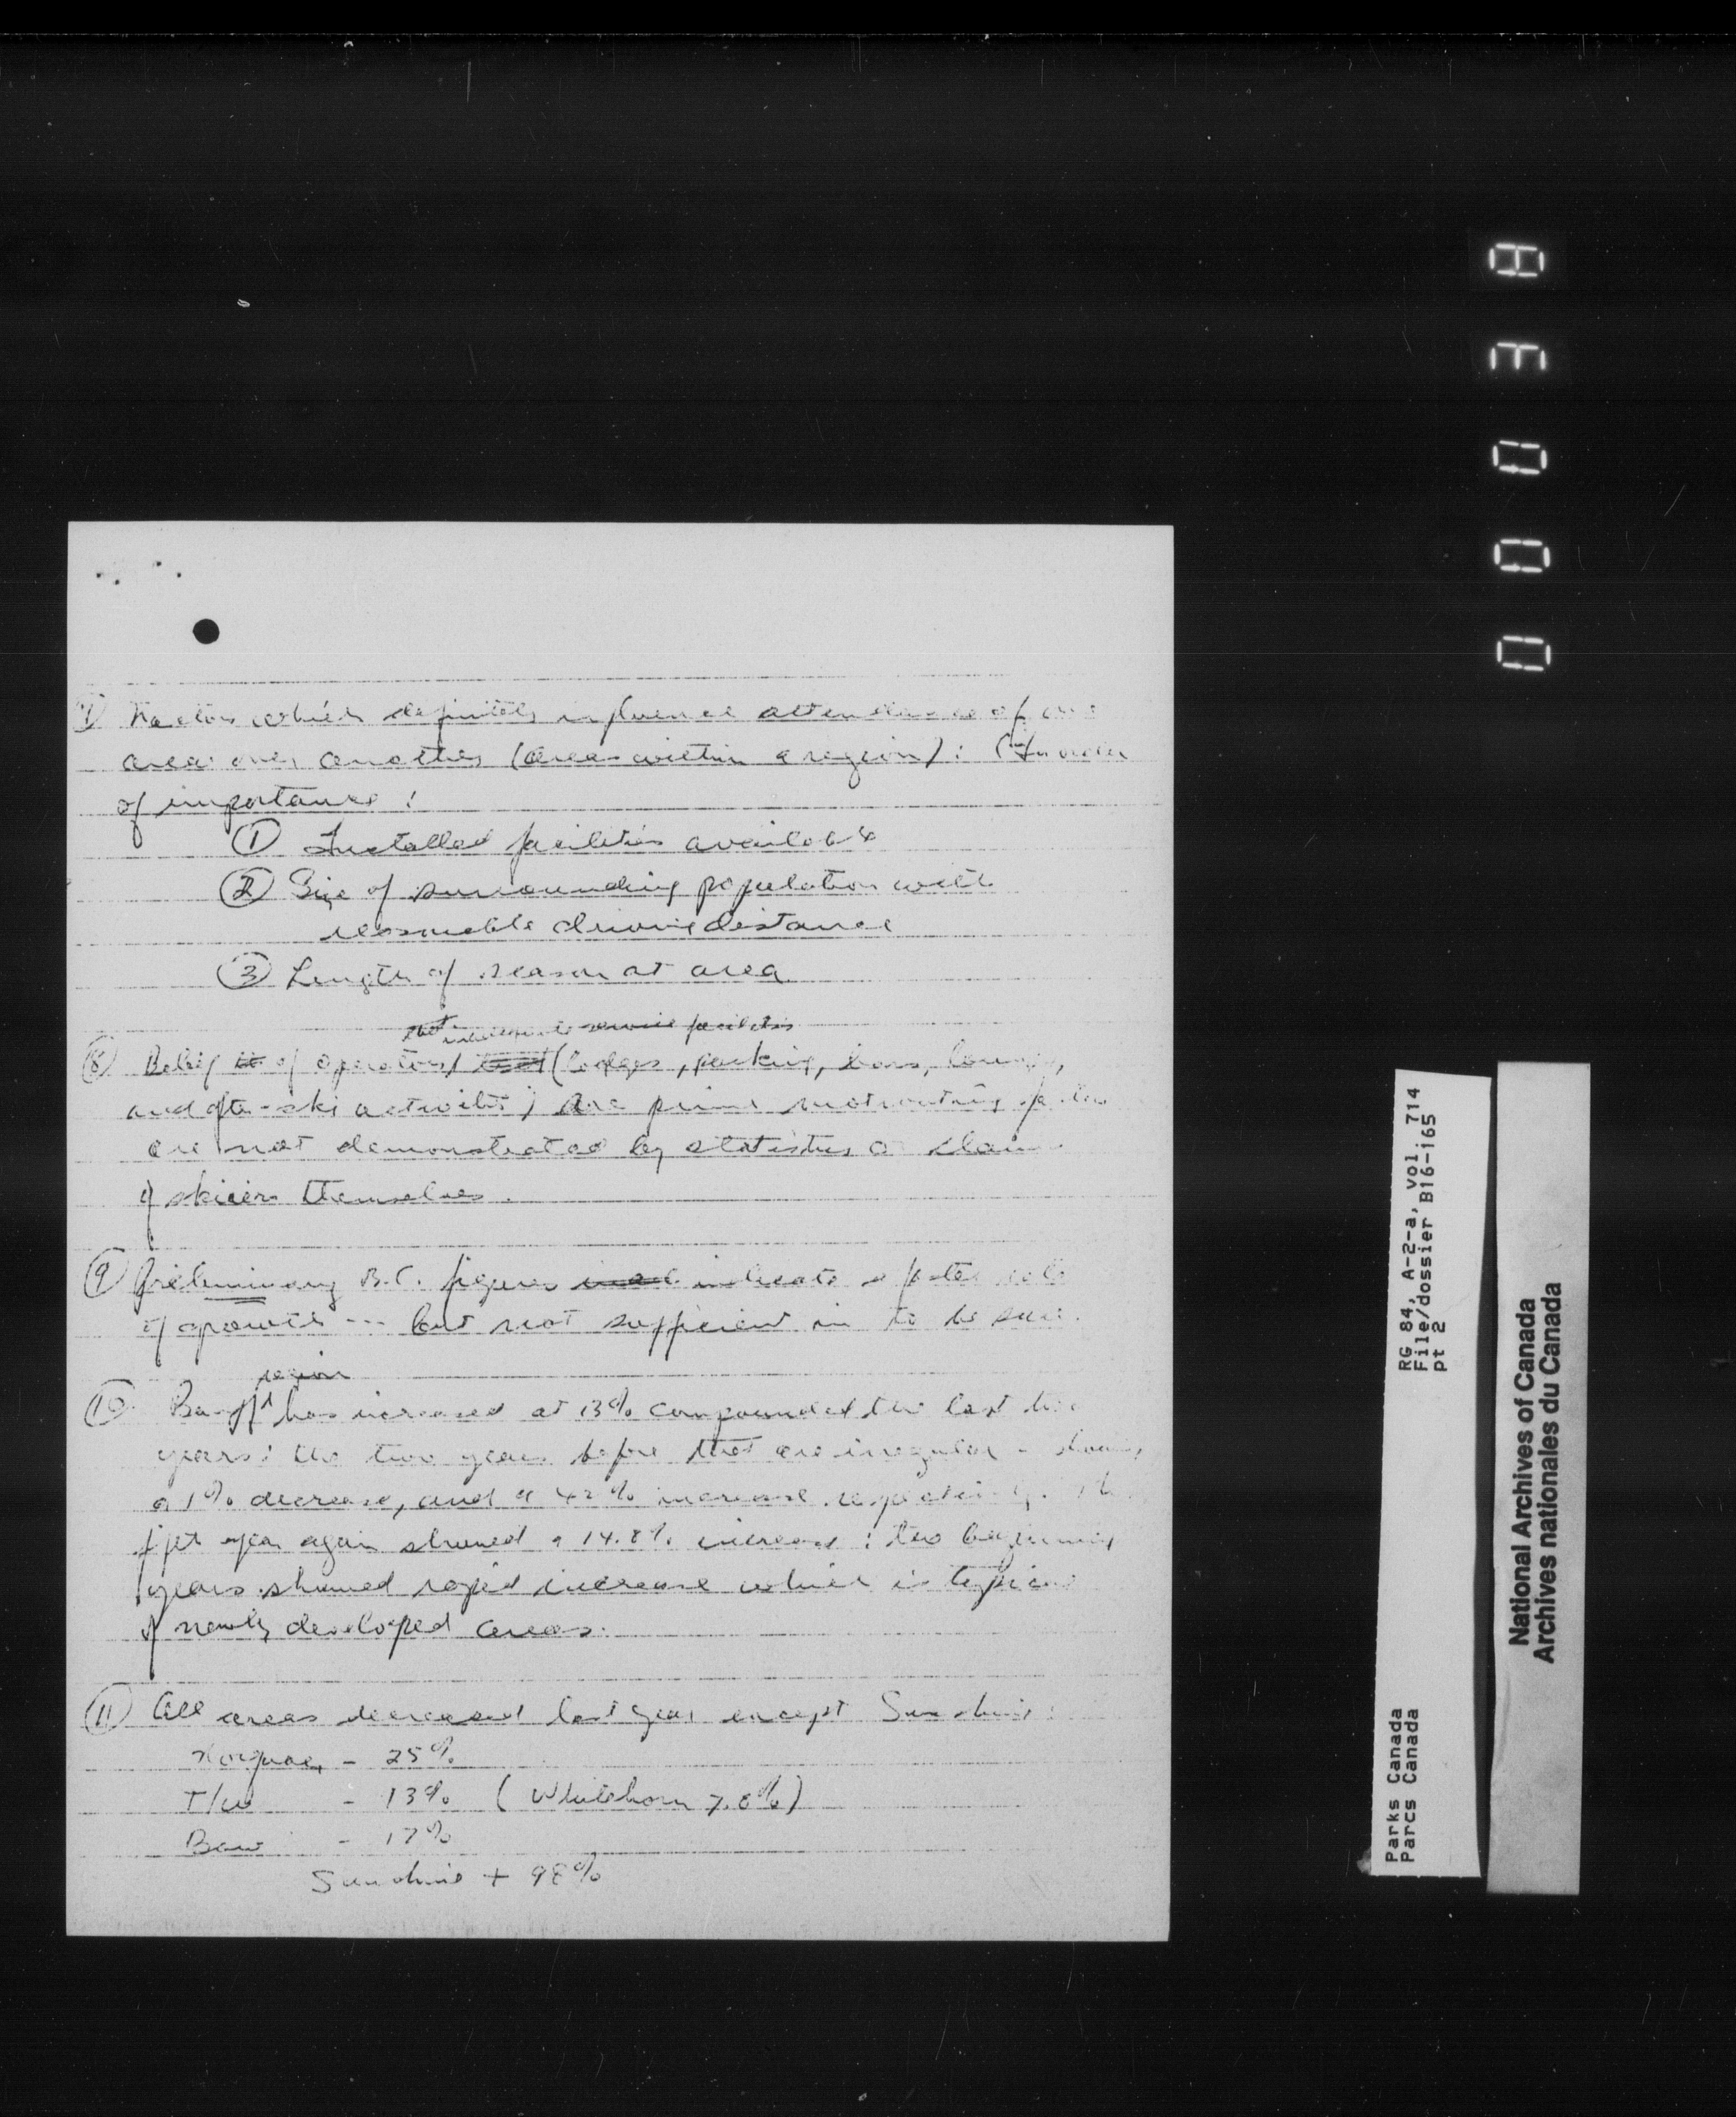 Factors which definitely influence attendance of one
area over another (areas within a region): (In order
of importance:
① Installed facilities available
② Size of surrounding population with
reasonable driving distance
③ Length of season at area
that service facilities
⑧ Belief of operators (lodges, parking, bars, lounges,
and after-ski activities) are prime motivating
are not demonstrated by statistics or claims
of skiers themselves.
⑨ Preliminary B.C. figures indicate a faster rate
of growth --- but not sufficient in to be sure.
region
⑩ Banff has increased at 13% compounded the last two
years: the two years before that are irregular - showing
a 1% decrease, and a 42% increase respectively. The
first year again showed a 14.8% increase: two beginning
years showed rapid increase which is typical
of newly developed areas.
⑪ All areas decreased last year except Sunshine:
Norquay - 25%
T/W - 13% (Whitehorn 7.8%)
- 17%
Sunshine + 98%
00038
RG 84, A-2-a, vol. 714
File/dossier B16-165
pt 2
Parks Canada
Parcs Canada
National Archives of Canada
Archives nationales du Canada